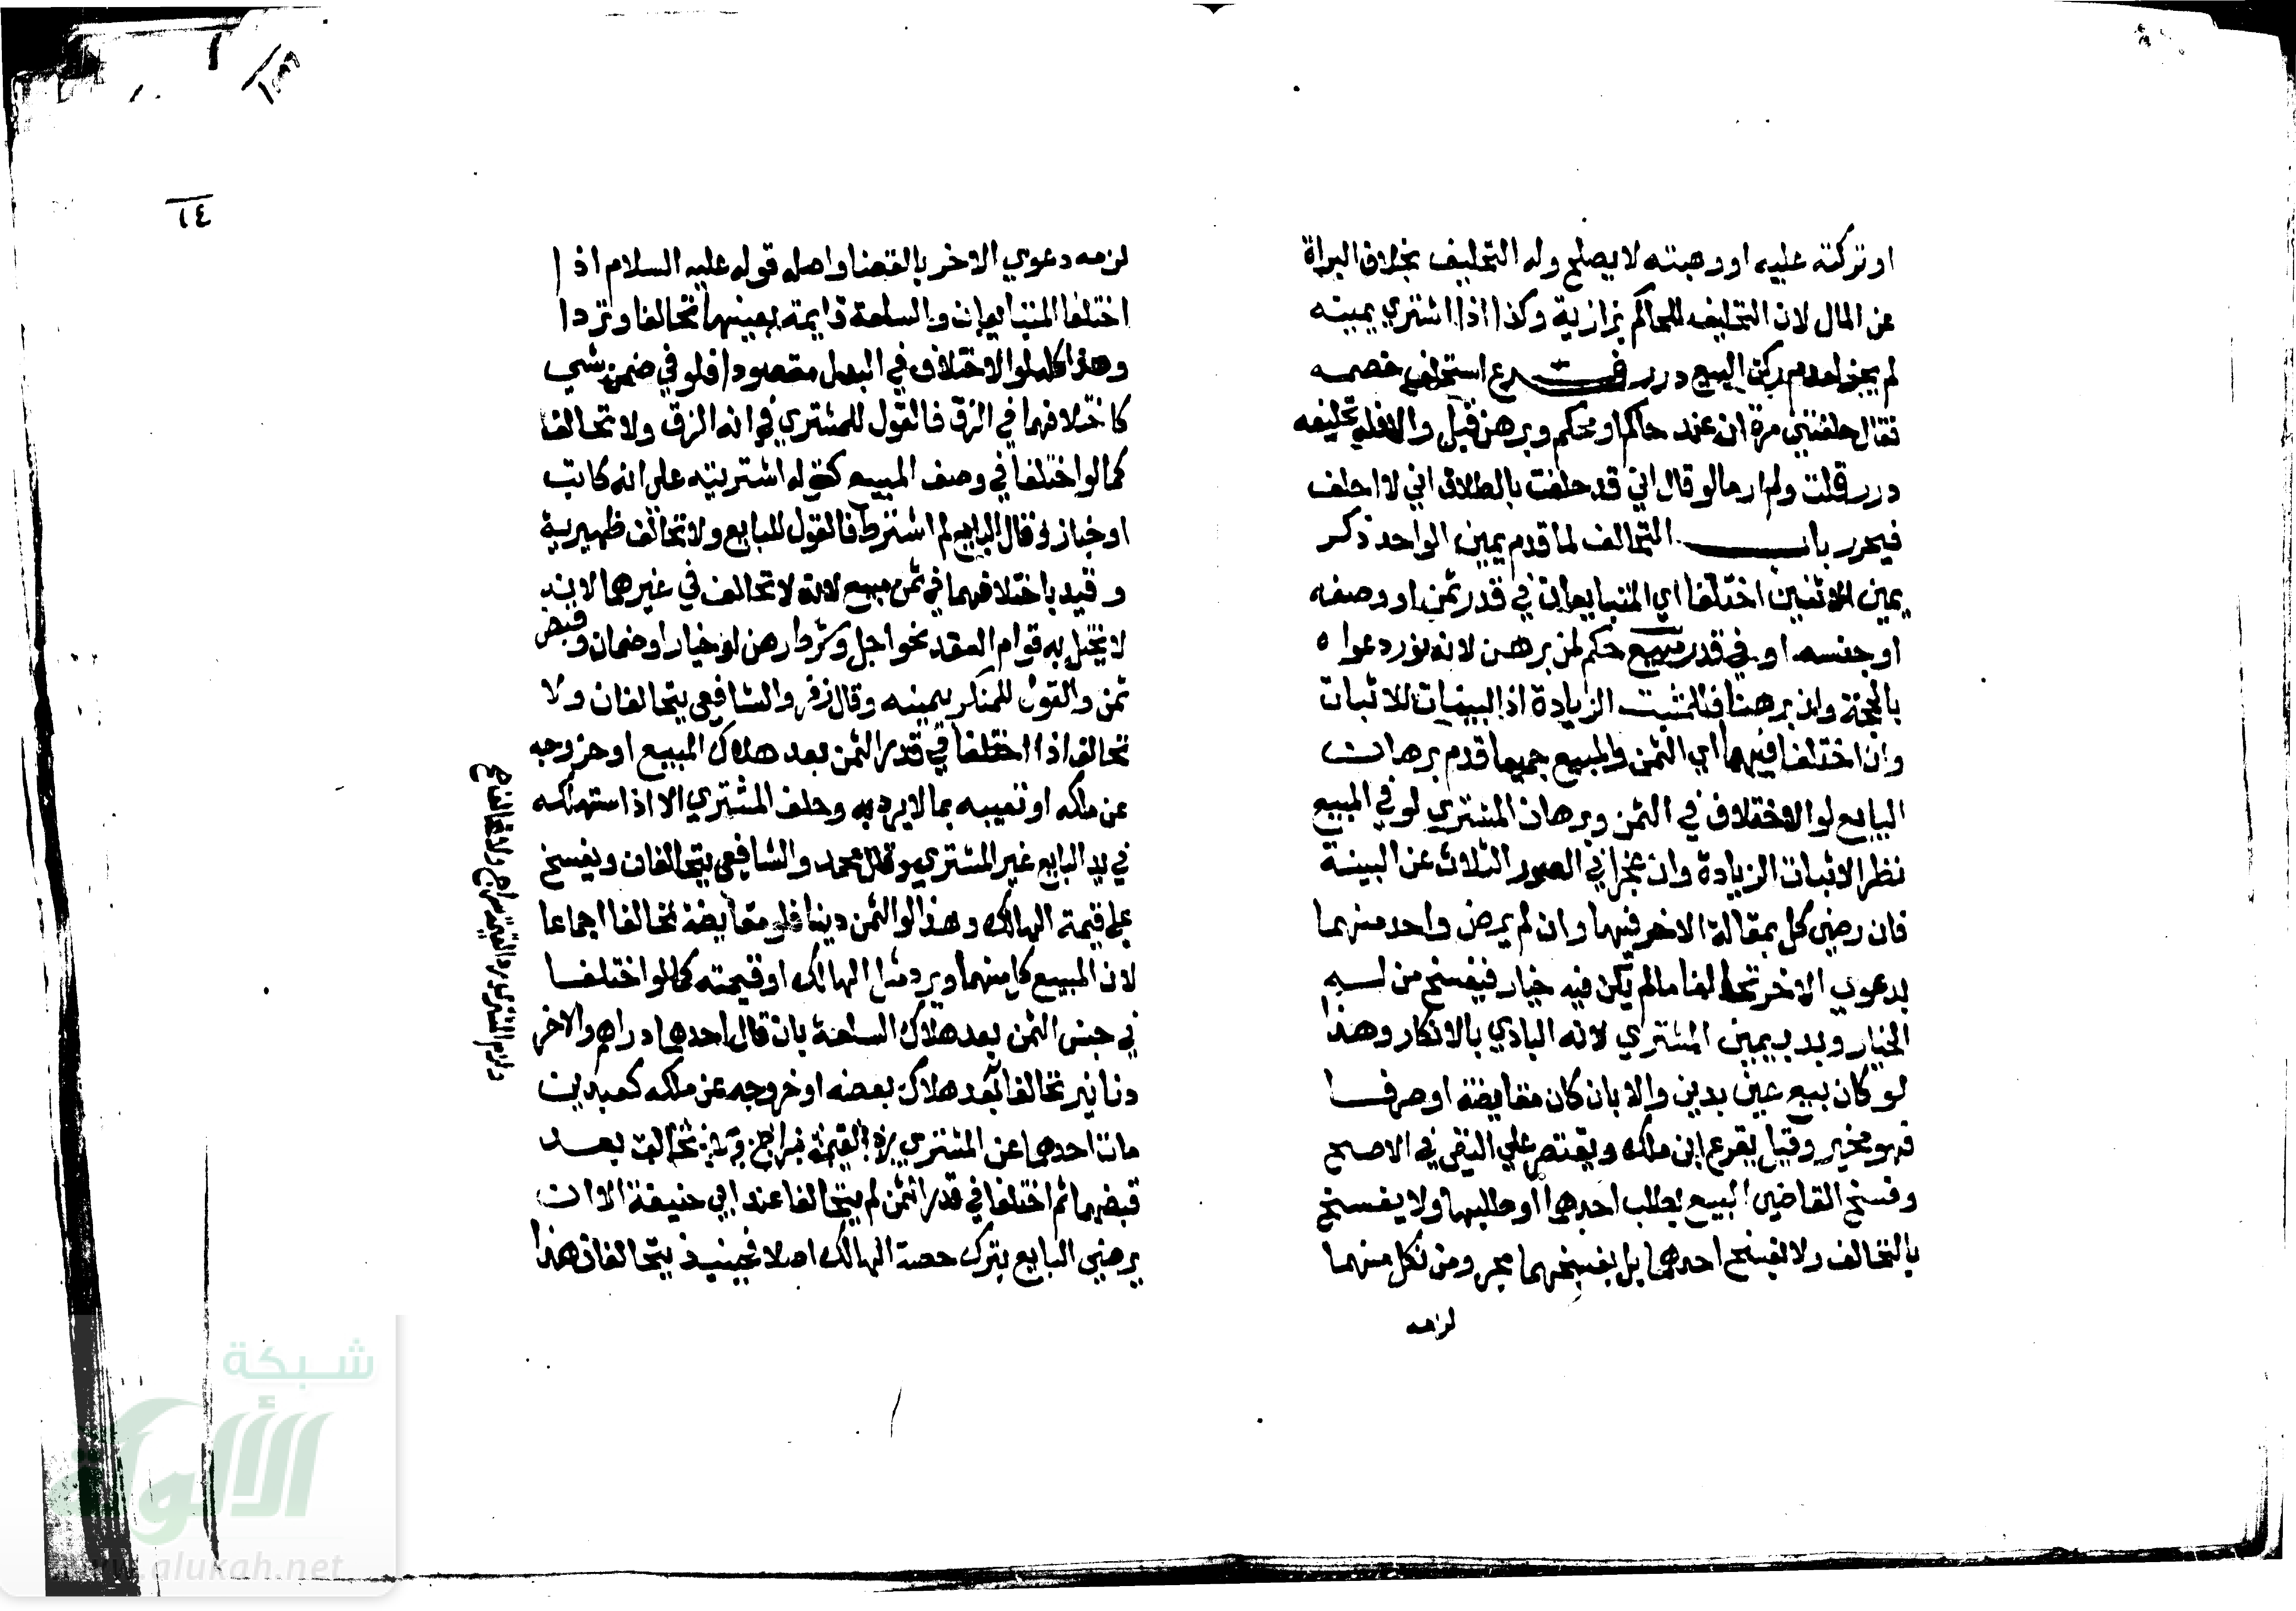 او تركته عليه او وهبته لا يصلح وله التحليف بخلاف البراة
عن المال لان التحليف للحاكم بزازية وكذا اذا اشتري يمينه
لم يجز لعدم ركن البيع درر فرع استحلف خصمه
فقال حلفتني مرة ان عند حاكم او محكم وبرهن قبل والا فله تحليفه
درر قلت ولم ار ما لو قال اني قد حلفت بالطلاق اني لا احلف
فيحرر باب التحالف لما قدم يمين الواحد ذكر
يمين الاثنين اختلفا اي المتبايعان في قدر ثمن او وصفه
او جنسه او في قدر مبيع حكم لمن برهن لانه نور دعواه
بالحجة وان برهنا فلمثبت الزيادة اذ البينات للاثبات
وان اختلفا فيهما اي الثمن والمبيع جميعا قدم برهان
البايع لو الاختلاف في الثمن وبرهان المشتري لو في المبيع
نظرا لاثبات الزيادة وان عجزا في الصور الثلاث عن البينة
فان رضي كل بمقالة الاخر فيها وان لم يرض واحد منهما
بدعوي الاخر تحالفا ما لم يكن فيه خيار فيفسخ من له
الخيار وبد بيمين المشتري لانه البادي بالانكار وهذا
لو كان بيع عين بدين والا بان كان مقايضة او صرفا
فهو مخير وقيل يقرع ابن ملك ويقتصر علي النفي في الاصح
وفسخ القاضي البيع بطلب احدهما او طلبهما ولا ينفسخ
بالتحالف ولا بفسخ احدهما بل بفسخهما بحر ومن نكل منهما
لزمه
١٤
لزمه دعوي الاخر بالقضا واصله قوله عليه السلام اذا
اختلفا المتبايعان والسلعة قايمة بعينها تحالفا وترادا
وهذا كله لو الاختلاف في البدل مقصودا فلو في ضمن شي
كاختلافهما في الزق فالقول للمشتري في انه الزق ولا تحالفا
كما لو اختلفا في وصف المبيع كقوله اشتريته علي انه كاتب
او خباز وقال البايع لم اشترط فالقول للبايع ولا تحالف ظهيرية
وقيد باختلافهما في ثمن مبيع لانه لا تحالف في غيرهما لانه
لا يختل به قوام العقد نحو اجل وشرط رهن او خيار او ضمان وقبض
ثمن والقول للمنكر بيمينه وقال زفر والشافعي يتحالفان ولا
تحالف اذا اختلفا في قدر الثمن بعد هلاك المبيع او خروجه
عن ملكه او تعيبه بما لا يرد به وحلف المشتري الا اذا استهلكه
في يد البايع غير المشتري وقال محمد والشافعي يتحالفان ويفسخ
علي قيمة الهالك وهذا لو الثمن دينا فلو مقايضة تحالفا اجماعا
لان المبيع كل منهما ويرد مثل الهالك او قيمته كما لو اختلفا
في جنس الثمن بعد هلاك السلعة بان قال احدهما دراهم والاخر
دنانير تحالفا بعد هلاك بعضه او خروجه عن ملكه كعبدين
مات احدهما عند المشتري
قبضهما ثم اختلفا في قدر الثمن لم يتحالفا عند ابي حنيفة الا ان
يرضي البايع بترك حصة الهالك اصلا فحينيذ يتحالفان هذا
شبكة
الألوكة
www.alukah.net